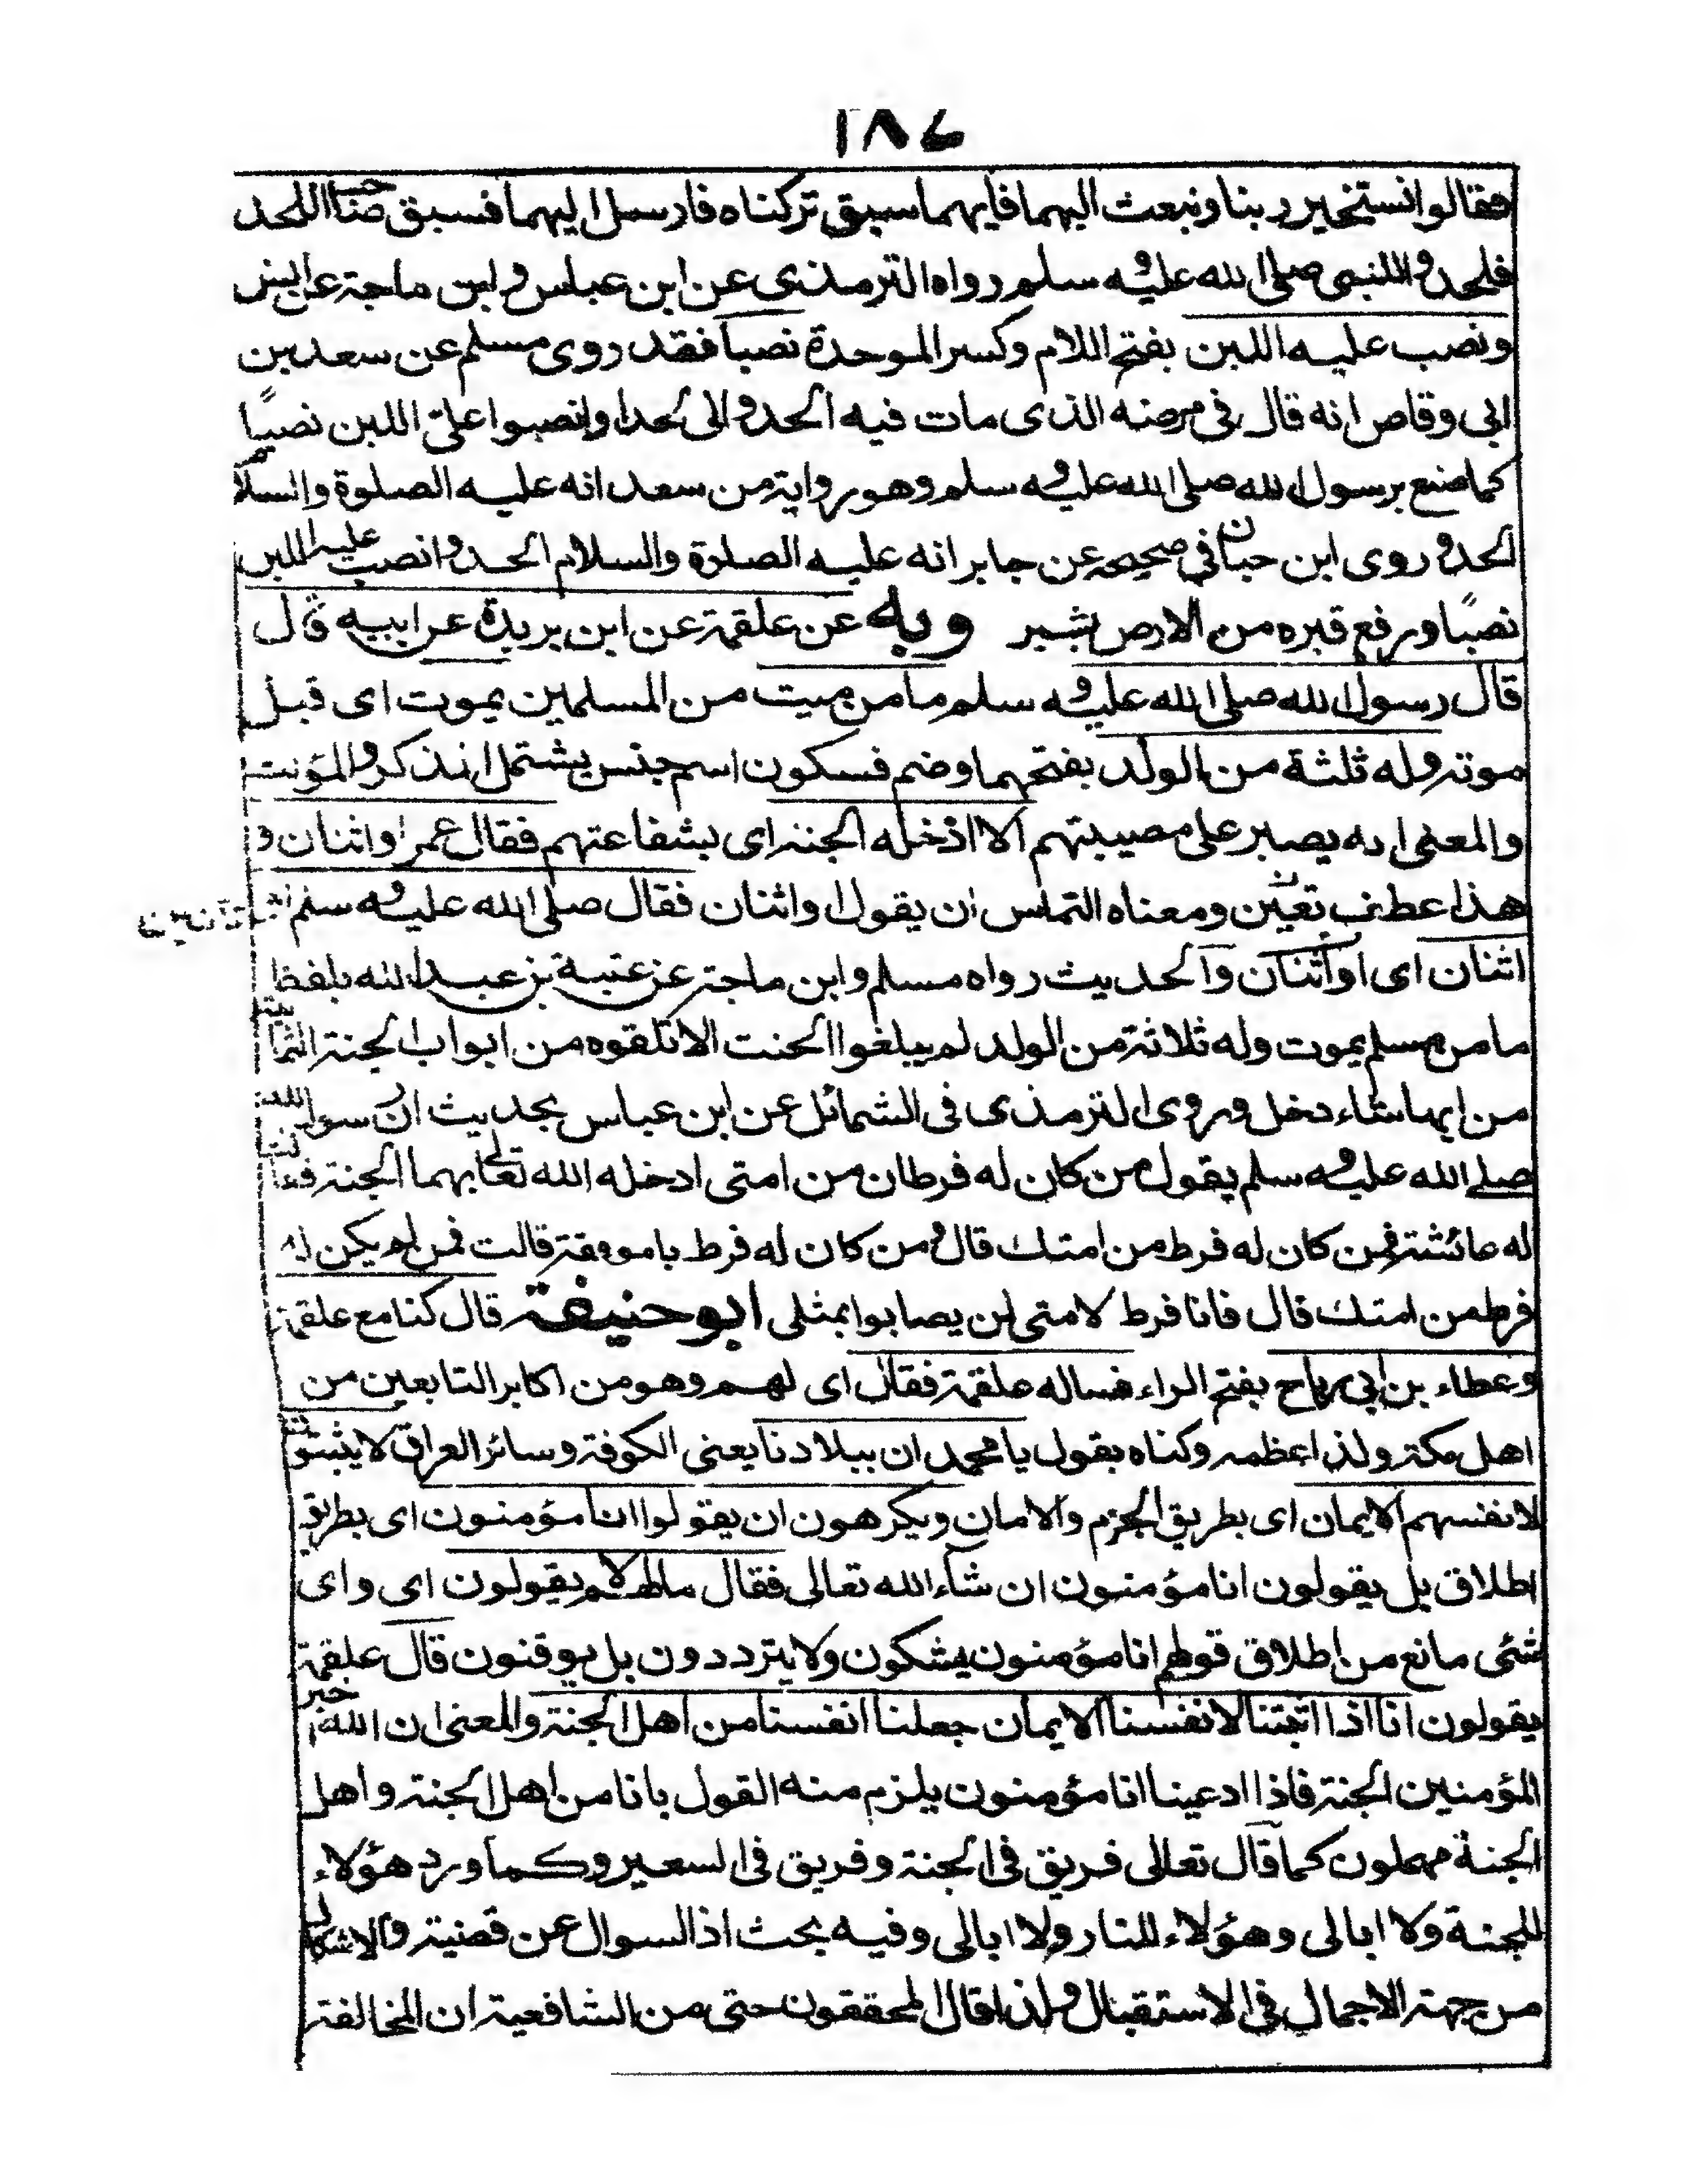 ١٨٤
فقالوا نستخير ربنا ونبعث اليهما فايهما سبق تركناه فارسل اليهما فسبق صاحب اللحد
فلحدوا للنبي صلى الله عليه وسلم رواه الترمذي عن ابن عباس وابن ماجة عن انس
ونصب عليه اللبن بفتح اللام وكسر الموحدة نصبا فقد روى مسلم عن سعد بن
ابي وقاص انه قال في مرضه الذي مات فيه الحدوا لي لحدا وانصبوا علي اللبن نصبًا
كما صنع برسول الله صلى الله عليه وسلم وهو رواية من سعد انه عليه الصلوة والسلام
الحد وروى ابن حبان في صحيحه عن جابر انه عليه الصلوة والسلام الحد وانصب عليه اللبن
نصبًا ورفع قبره من الارض بشبر وبه عن علقمة عن ابن بريدة عن ابيه قال
قال رسول الله صلى الله عليه وسلم ما من ميت من المسلمين يموت اى قبل
موته وله ثلثة من الولد بفتحهما وضم فسكون اسم جنس يشتمل المذكر والمؤنث
والمعنى انه يصبر على مصيبتهم الا ادخله الجنة اى بشفاعتهم فقال عمر او اثنان و
هذا عطف تعين ومعناه التماس ان يقول او اثنان فقال صلى الله عليه وسلم
اثنان اى او اثنان والحديث رواه مسلم وابن ماجة عن عتبة بن عبد الله بلفظ
ما من مسلم يموت وله ثلاثة من الولد لم يبلغوا الحنت الا تلقوه من ابواب الجنة الثمانية
من ايها شاء دخل وروى الترمذي في الشمائل عن ابن عباس بحديث ان رسول الله
صلى الله عليه وسلم يقول من كان له فرطان من امتى ادخله الله تعالى بهما الجنة فقالت
له عائشة فمن كان له فرط من امتك قال ومن كان له فرط يا موفقة قالت فمن لم يكن له
فرط من امتك قال فانا فرط لامتى لن يصابوا بمثلى ابو حنيفة قال كنا مع علقمة
وعطاء بن ابي رباح بفتح الراء فساله علقمة فقال اى لهم وهو من اكابر التابعين من
اهل مكة ولذا عظمه وكناه بقول يا محمد ان ببلادنا يعنى الكوفة وسائر العراق لا يثبتون
لانفسهم الايمان اى بطريق الجزم والامان ويكرهون ان يقولوا انا مؤمنون اى بطريق
اطلاق بل يقولون انا مؤمنون ان شاء الله تعالى فقال ما لهم لا يقولون اى واى
شئى مانع من اطلاق قولهم انا مؤمنون يشكون ولا يترددون بل يوقنون قال علقمة
يقولون انا اذا اثبتنا لانفسنا الايمان جعلنا انفسنا من اهل الجنة والمعنى ان الله اخبر
المؤمنين الجنة فاذا ادعينا انا مؤمنون يلزم منه القول بانا من اهل الجنة واهل
الجنة مهملون كما قال تعالى فريق في الجنة وفريق في السعير وكما ورد هؤلاء
للجنة ولا ابالى وهؤلاء للنار ولا ابالى وفيه بحث اذ السوال عن قضية والاشكال
من جهة الاجمال في الاستقبال ولذا قال المحققون حتى من الشافعية ان المخالفة